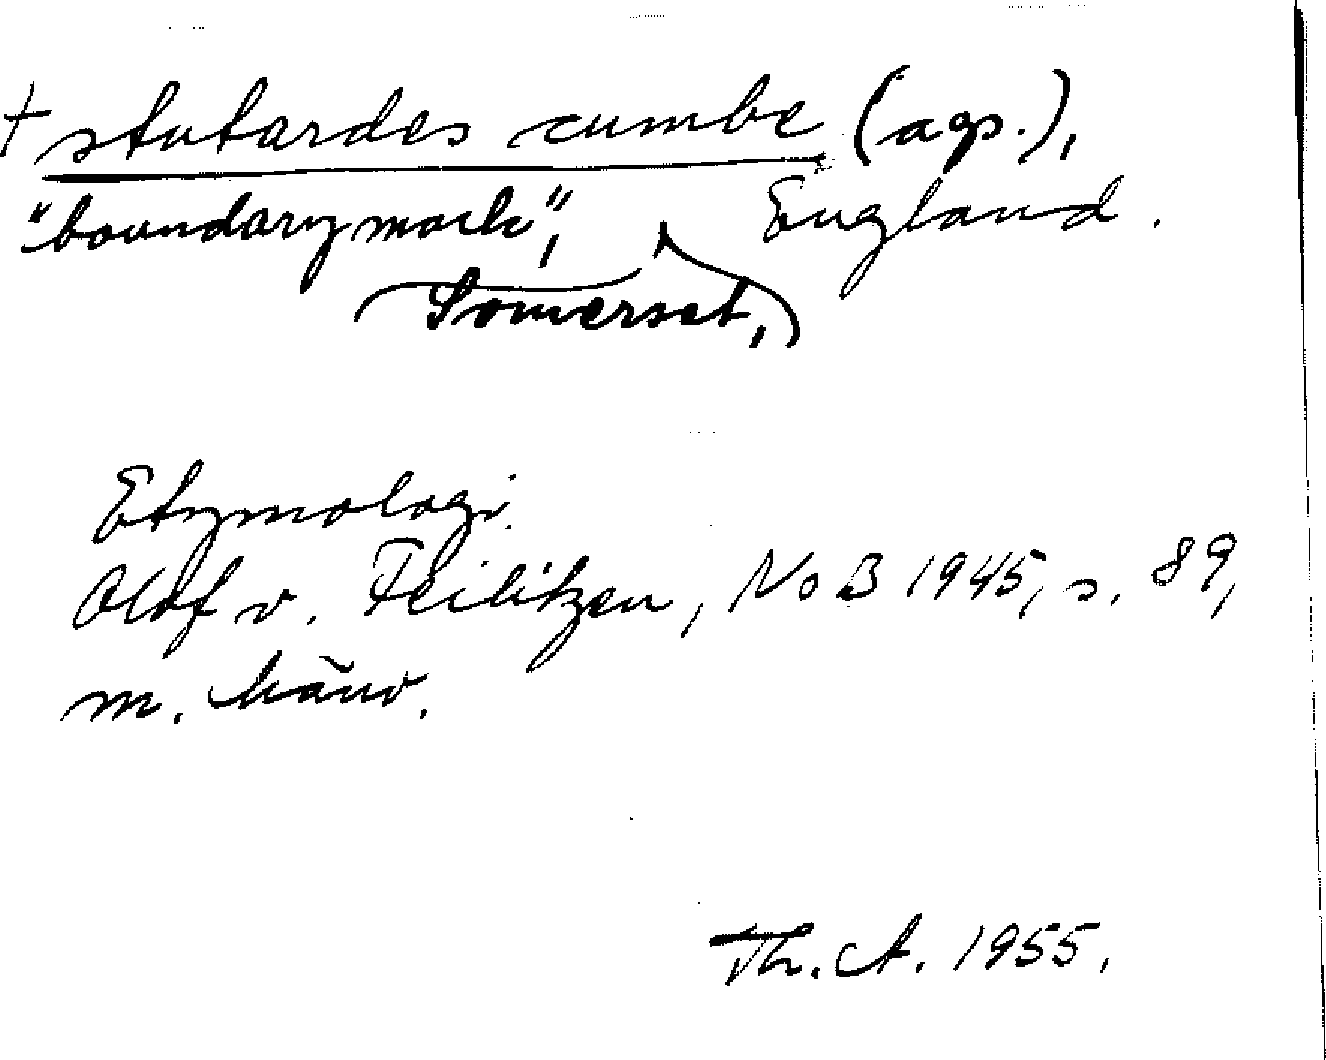 † stutardes cumbe (ags.),
"boundary mark", England.
Somerset,
Etymologi.
Olof v. Feilitzen, NoB 1945, s. 89,
m. hänv.
Th. A. 1955.